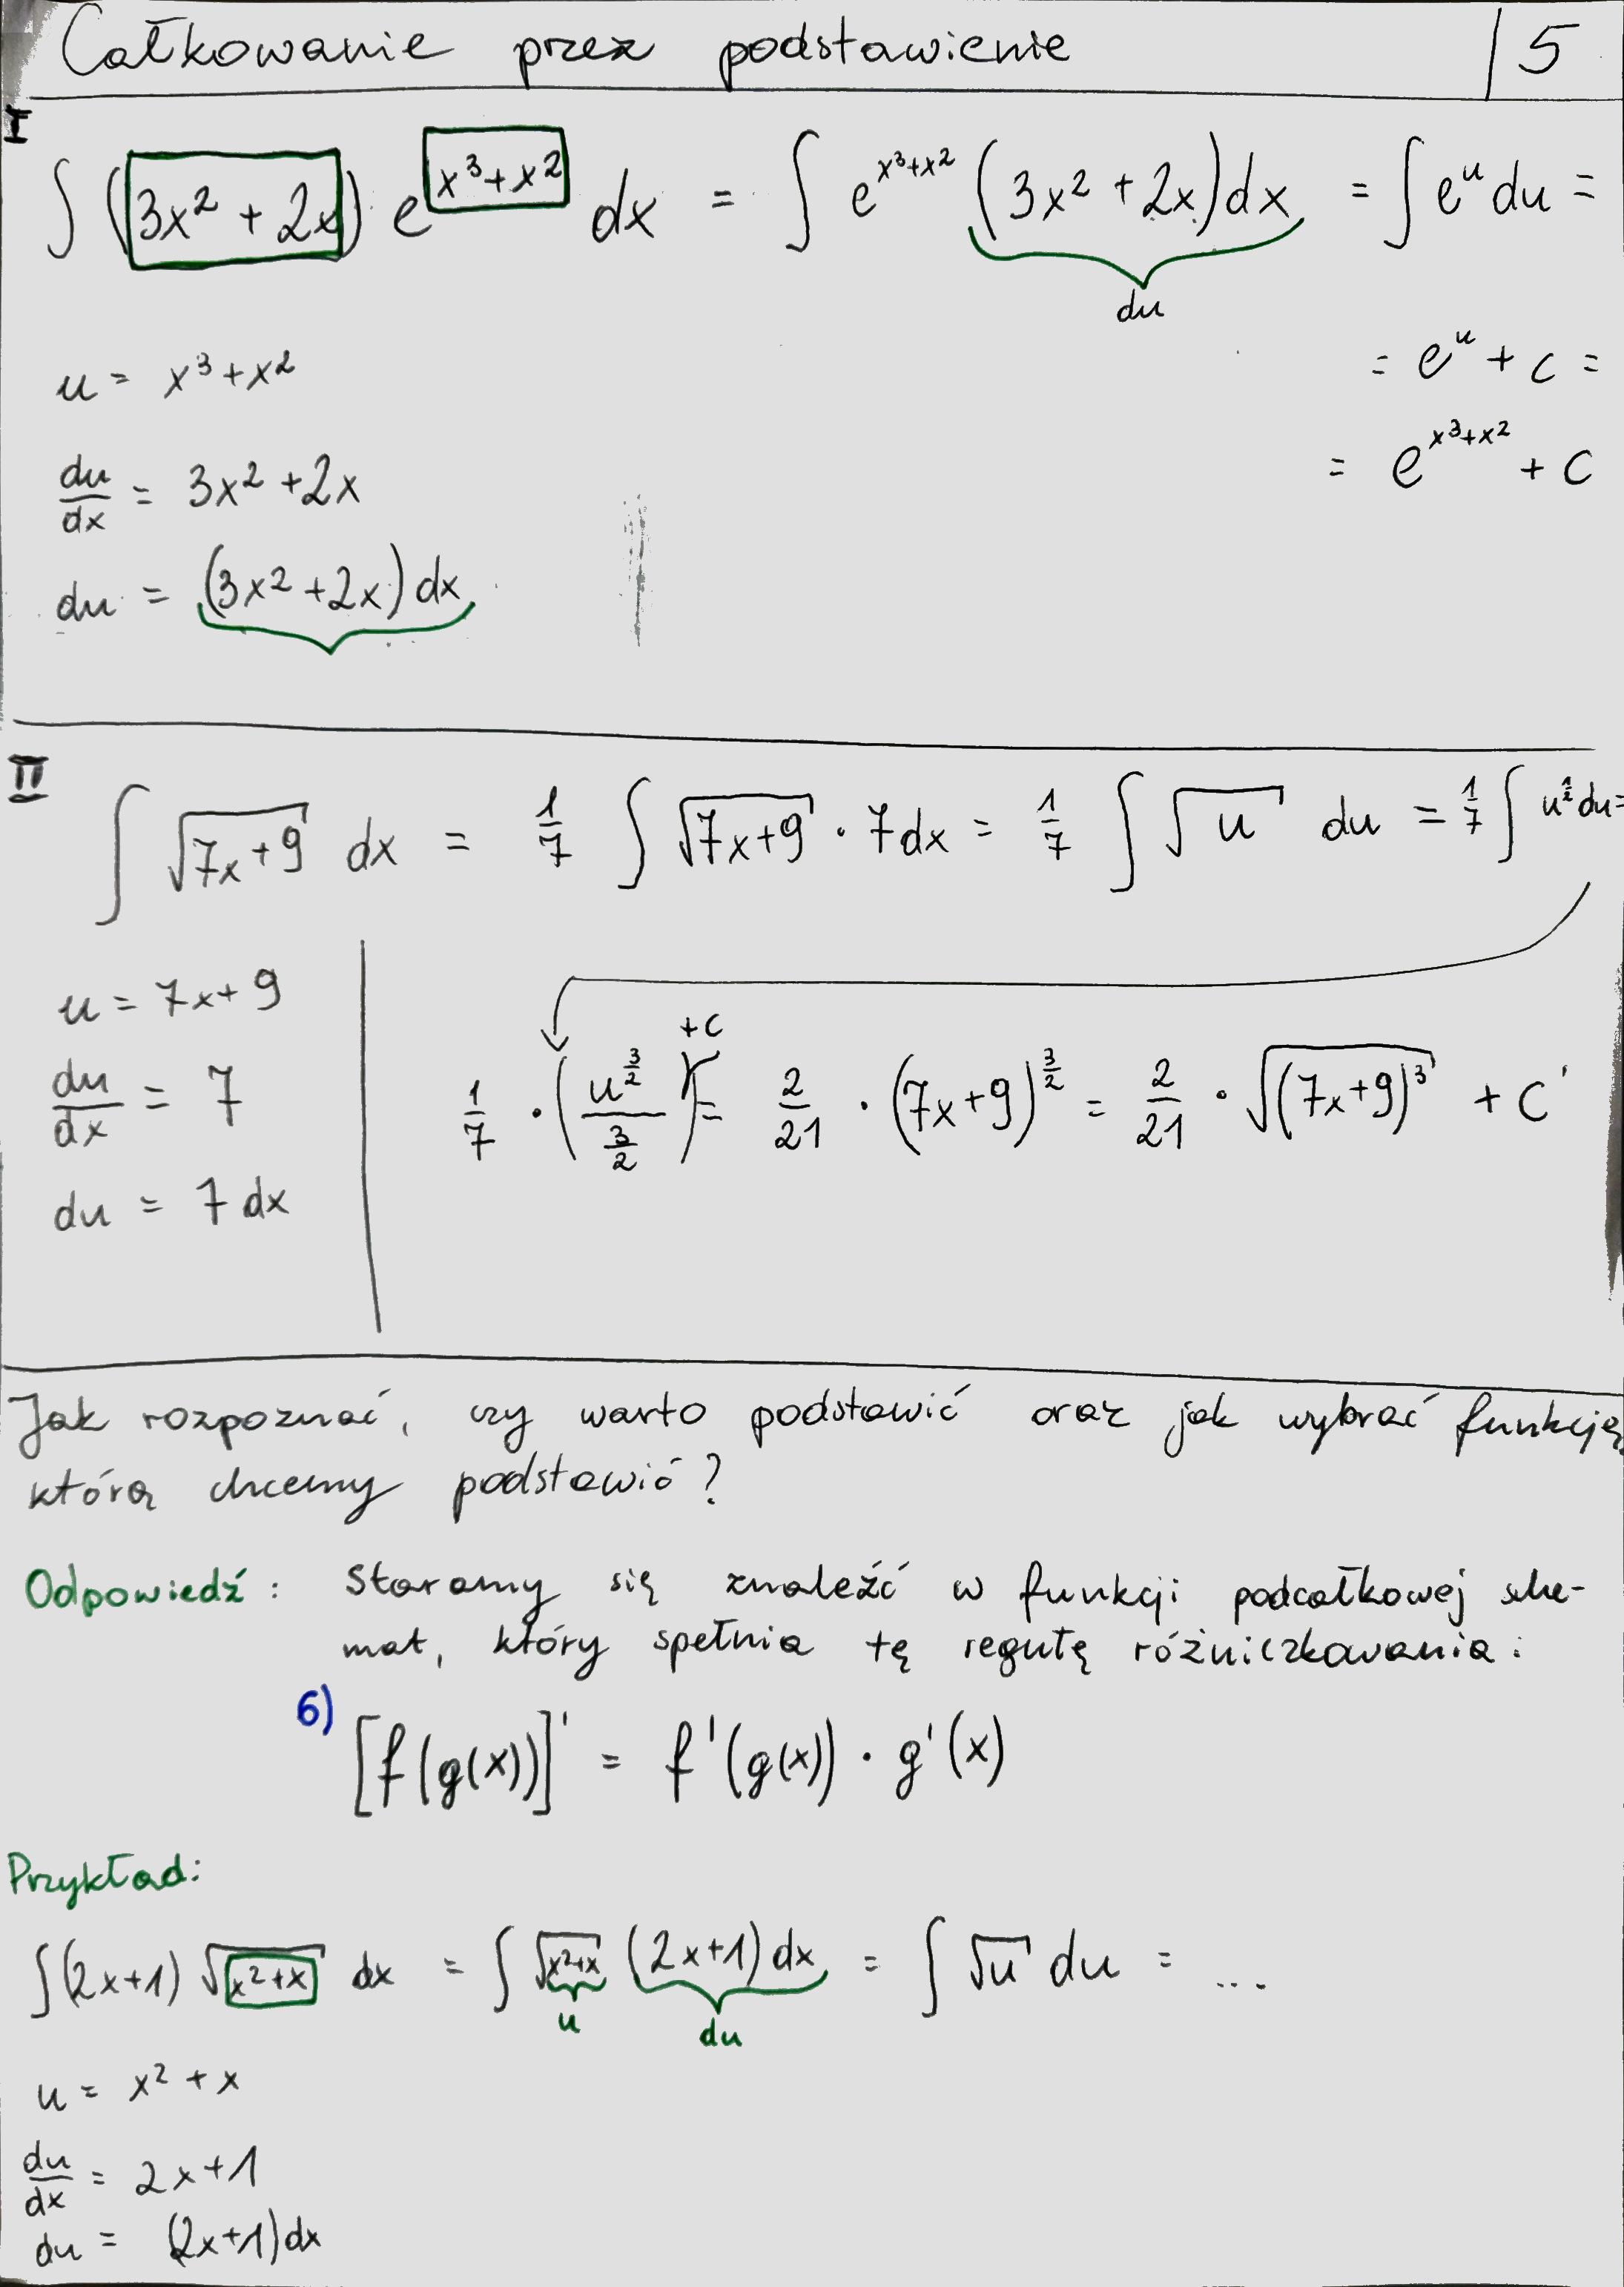 Całkowanie przez podstawienie | 5
I
∫ (3x² + 2x) e^(x³+x²) dx = ∫ e^(x³+x²) (3x² + 2x) dx = ∫ e^u du =
du
u = x³+x²
= e^u + c =
du/dx = 3x² + 2x
= e^(x³+x²) + c
du = (3x² + 2x) dx
II
∫ √(7x+9) dx = 1/7 ∫ √(7x+9) · 7dx = 1/7 ∫ √u du = 1/7 ∫ u^(1/2) du =
u = 7x+9
+c
du/dx = 7
1/7 · (u^(3/2) / (3/2)) = 2/21 · (7x+9)^(3/2) = 2/21 · √((7x+9)³) + C'
du = 7 dx
Jak rozpoznać, czy warto podstawić oraz jak wybrać funkcję,
którą chcemy podstawić?
Odpowiedź: Staramy się znaleźć w funkcji podcałkowej sche-
mat, który spełnia tę regułę różniczkowania:
6)
[f(g(x))]' = f'(g(x)) · g'(x)
Przykład:
∫(2x+1) √(x²+x) dx = ∫ √(x²+x) (2x+1) dx = ∫ √u du = ...
u du
u = x² + x
du/dx = 2x+1
du = (2x+1)dx